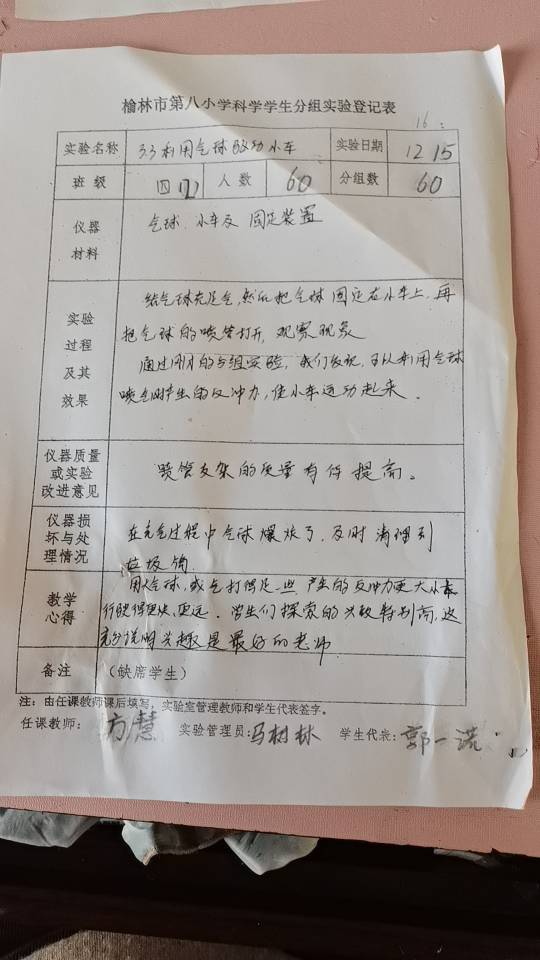 榆林市第八小学科学学生分组实验登记表
16
实验名称 3.3利用气球驱动小车 实验日期 12 15
班 级 四 人 数 60 分组数 60
仪器
材料
气球、小车及 固定装置
实验
过程
及其
效果
给气球充足气,然后把气球 固定在小车上,再
把气球的喷管打开,观察现象
通过 的 组实验,我们发现,可以利用气球
喷气时产生的反冲力,使小车运动起来.
仪器质量
或实验
改进意见
喷管支架的质量有待提高。
仪器损
坏与处
理情况
在充气过程中气球爆炸了,及时清理到
垃圾
教学
心得
用大气球,或气打得足一些,产生的反冲力更大小车
行驶得更快、更远.学生们探索的兴致特别高,这
充分说明兴趣是最好的老师
备注 (缺席学生)
注:由任课教师课后填写,实验室管理教师和学生代表签字。
任课教师: 方慧 实验管理员: 马树林 学生代表: 郭一诺